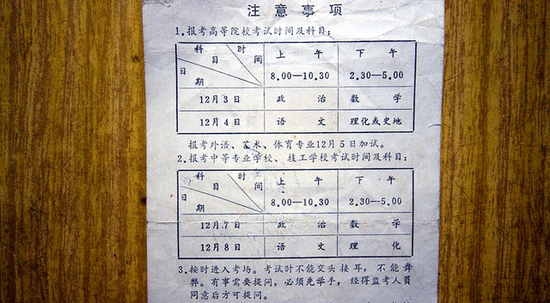 注意事项
1.报考高等院校考试时间及科目:
科目 时间 日期 上午 下午
8.00—10.30 2.30—5.00
12月3日 政治 数学
12月4日 语文 理化或史地
报考外语、艺术、体育专业12月5日加试。
2.报考中等专业学校、技工学校考试时间及科目:
科目 时间 日期 上午 下午
8.00—10.30 2.30—5.00
12月7日 政治 数学
12月8日 语文 理化
3.按时进入考场。考试时不能交头接耳,不能舞
弊。有事需要提问,必须先举手,经得监考人员
同意后方可提问。